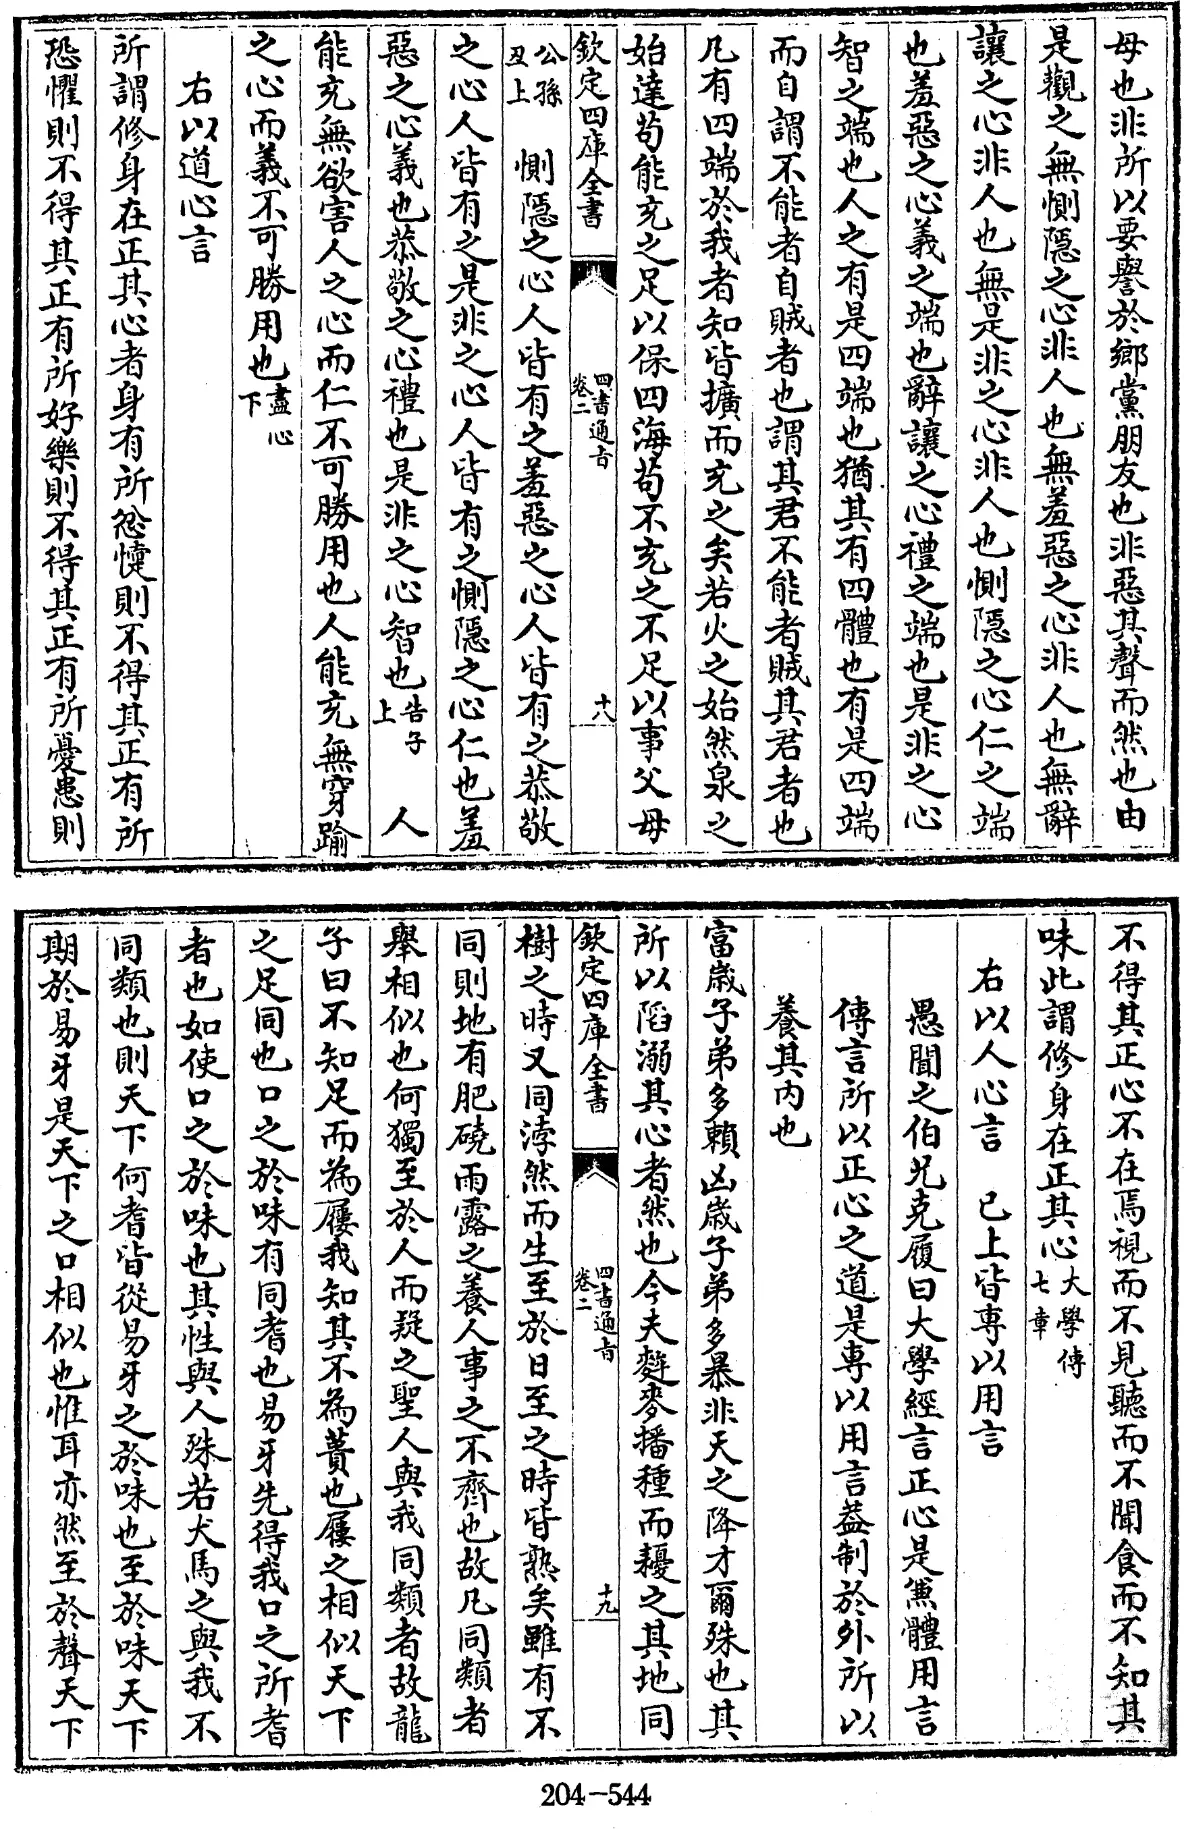 母也非所以要譽於鄉黨朋友也非惡其聲而然也由
是觀之無惻隠之心非人也無羞惡之心非人也無辭
讓之心非人也無是非之心非人也惻隠之心仁之端
也羞惡之心義之端也辭讓之心禮之端也是非之心
智之端也人之有是四端也猶其有四體也有是四端
而自謂不能者自賊者也謂其君不能者賊其君者也
凡有四端於我者知皆擴而充之矣若火之始然泉之
始達茍能充之足以保四海茍不充之不足以事父母
欽定四庫全書 四書通旨 卷二 十八
公孫丑上 惻隠之心人皆有之羞惡之心人皆有之恭敬
之心人皆有之是非之心人皆有之惻隠之心仁也羞
惡之心義也恭敬之心禮也是非之心智也告子上 人
能充無欲害人之心而仁不可勝用也人能充無穿踰
之心而義不可勝用也盡心下
右以道心言
所謂修身在正其心者身有所忿懥則不得其正有所
恐懼則不得其正有所好樂則不得其正有所憂患則
不得其正心不在焉視而不見聽而不聞食而不知其
味此謂修身在正其心大學傳七章
右以人心言 已上皆專以用言
愚聞之伯兄克履曰大學經言正心是兼體用言
傳言所以正心之道是專以用言葢制於外所以
養其内也
富歳子弟多賴凶歳子弟多暴非天之降才爾殊也其
所以陷溺其心者然也今夫麰麥播種而耰之其地同
欽定四庫全書 四書通旨 卷二 十九
樹之時又同浡然而生至於日至之時皆熟矣雖有不
同則地有肥磽雨露之養人事之不齊也故凡同類者
舉相似也何獨至於人而疑之聖人與我同類者故龍
子曰不知足而為屨我知其不為蕢也屨之相似天下
之足同也口之於味有同耆也易牙先得我口之所耆
者也如使口之於味也其性與人殊若犬馬之與我不
同類也則天下何耆皆從易牙之於味也至於味天下
期於易牙是天下之口相似也惟耳亦然至於聲天下
204-544